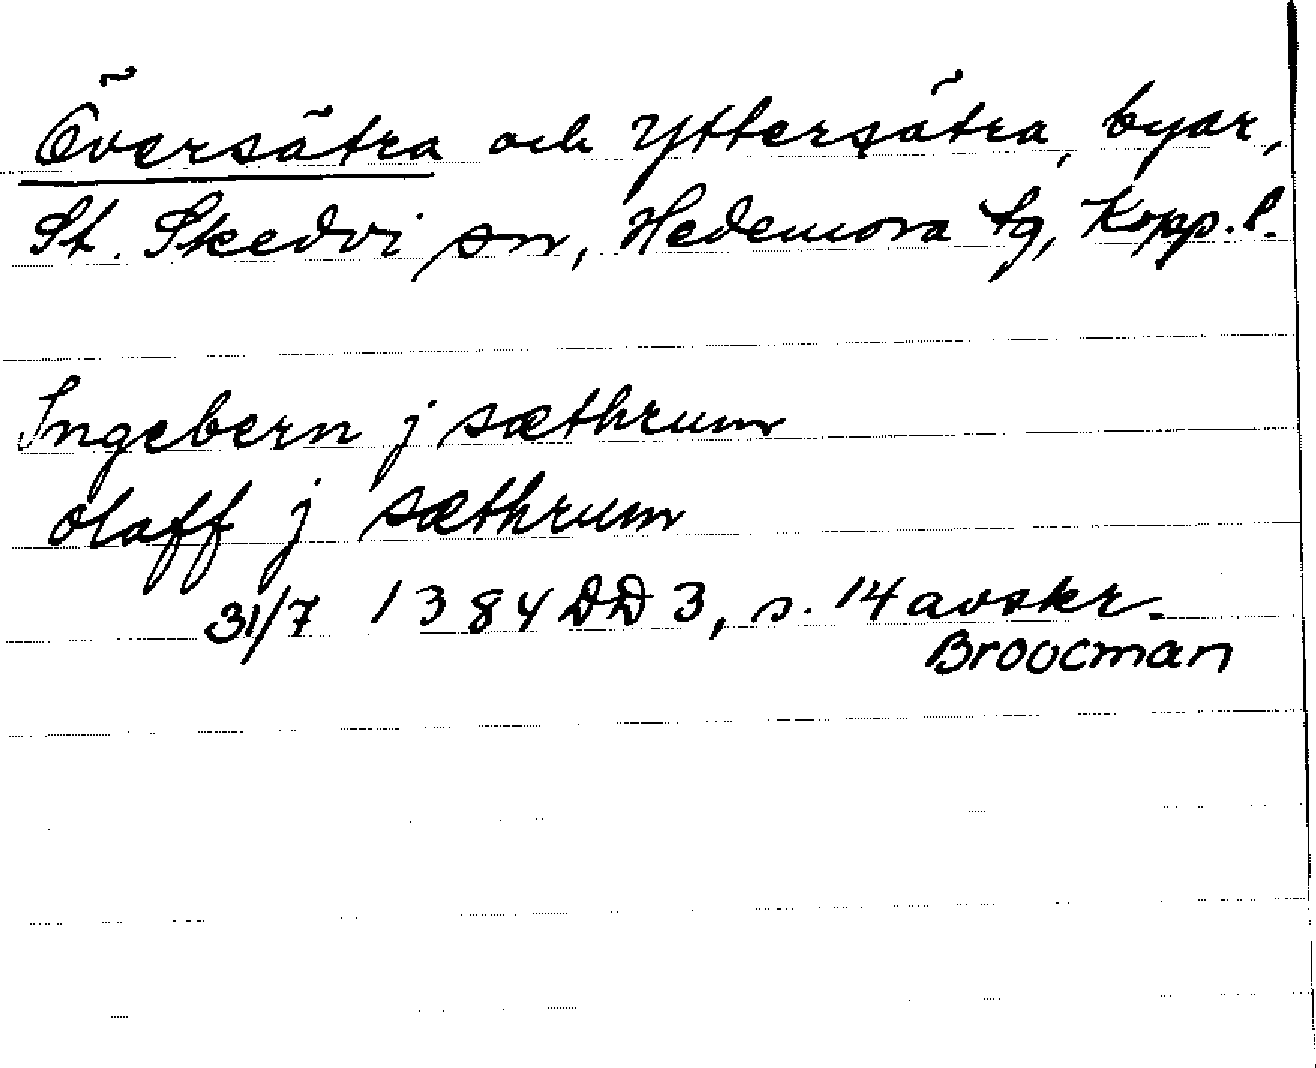 Översätra och Yttersätra, byar,
St. Skedvi sn, Hedemora tg, Kopp.l.
Ingebern j sæthrum
Olaff j sæthrum
31/7 1384 DD 3, s. 14 avskr.
Broocman